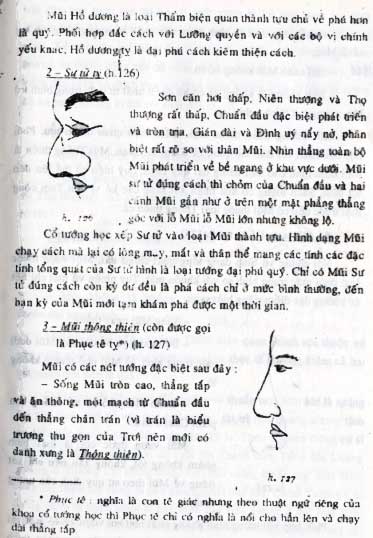 Mũi Hồ dương là loại Thẩm biện quan thành tựu chủ về phú hơn
là quý. Phối hợp đắc cách với Lưỡng quyền và với các bộ vị chính
yếu khác, Hồ dương tỵ là đại phú cách kiêm thiện cách.
2 – Sư tử tỵ (h.126)
Sơn căn hơi thấp, Niên thượng và Thọ
thượng rất thấp, Chuẩn đầu đặc biệt phát triển
và tròn trịa, Gián đài và Đình uý nẩy nở, phân
biệt rất rõ so với thân Mũi. Nhìn thẳng toàn bộ
Mũi phát triển về bề ngang ở khu vực dưới. Mũi
sư tử đúng cách thì chỏm của Chuẩn đầu và hai
cánh Mũi gần như ở trên một mặt phẳng thẳng
góc với lỗ Mũi lỗ Mũi lớn nhưng không lộ.
h. 126
Cổ tướng học xếp Sư tử vào loại Mũi thành tựu. Hình dạng Mũi
chạy cách mà lại có lông mày, mắt và thân thể mang các tính các đặc
tính tổng quát của Sư tử hình là loại tướng đại phú quý. Chỉ có Mũi Sư
tử đúng cách còn kỳ dư đều là phá cách chỉ ở mức bình thường, đến
hạn kỳ của Mũi mới tạm khám phá được một thời gian.
3 – Mũi thông thiên (còn được gọi
là Phục tê tỵ*) (h. 127)
Mũi có các nét tướng đặc biệt sau đây :
– Sống Mũi tròn cao, thẳng tắp
và ăn thông, một mạch từ Chuẩn đầu
đến thẳng chân trán (vì trán là biểu
trương thu gọn của Trời nên mới có
danh xưng là Thông thiên).
h. 127
* Phục tê : nghĩa là con tê giác nhưng theo thuật ngữ riêng của
khoa cổ tướng học thì Phục tê chỉ có nghĩa là nổi cho hẳn lên và chạy
dài thẳng tắp